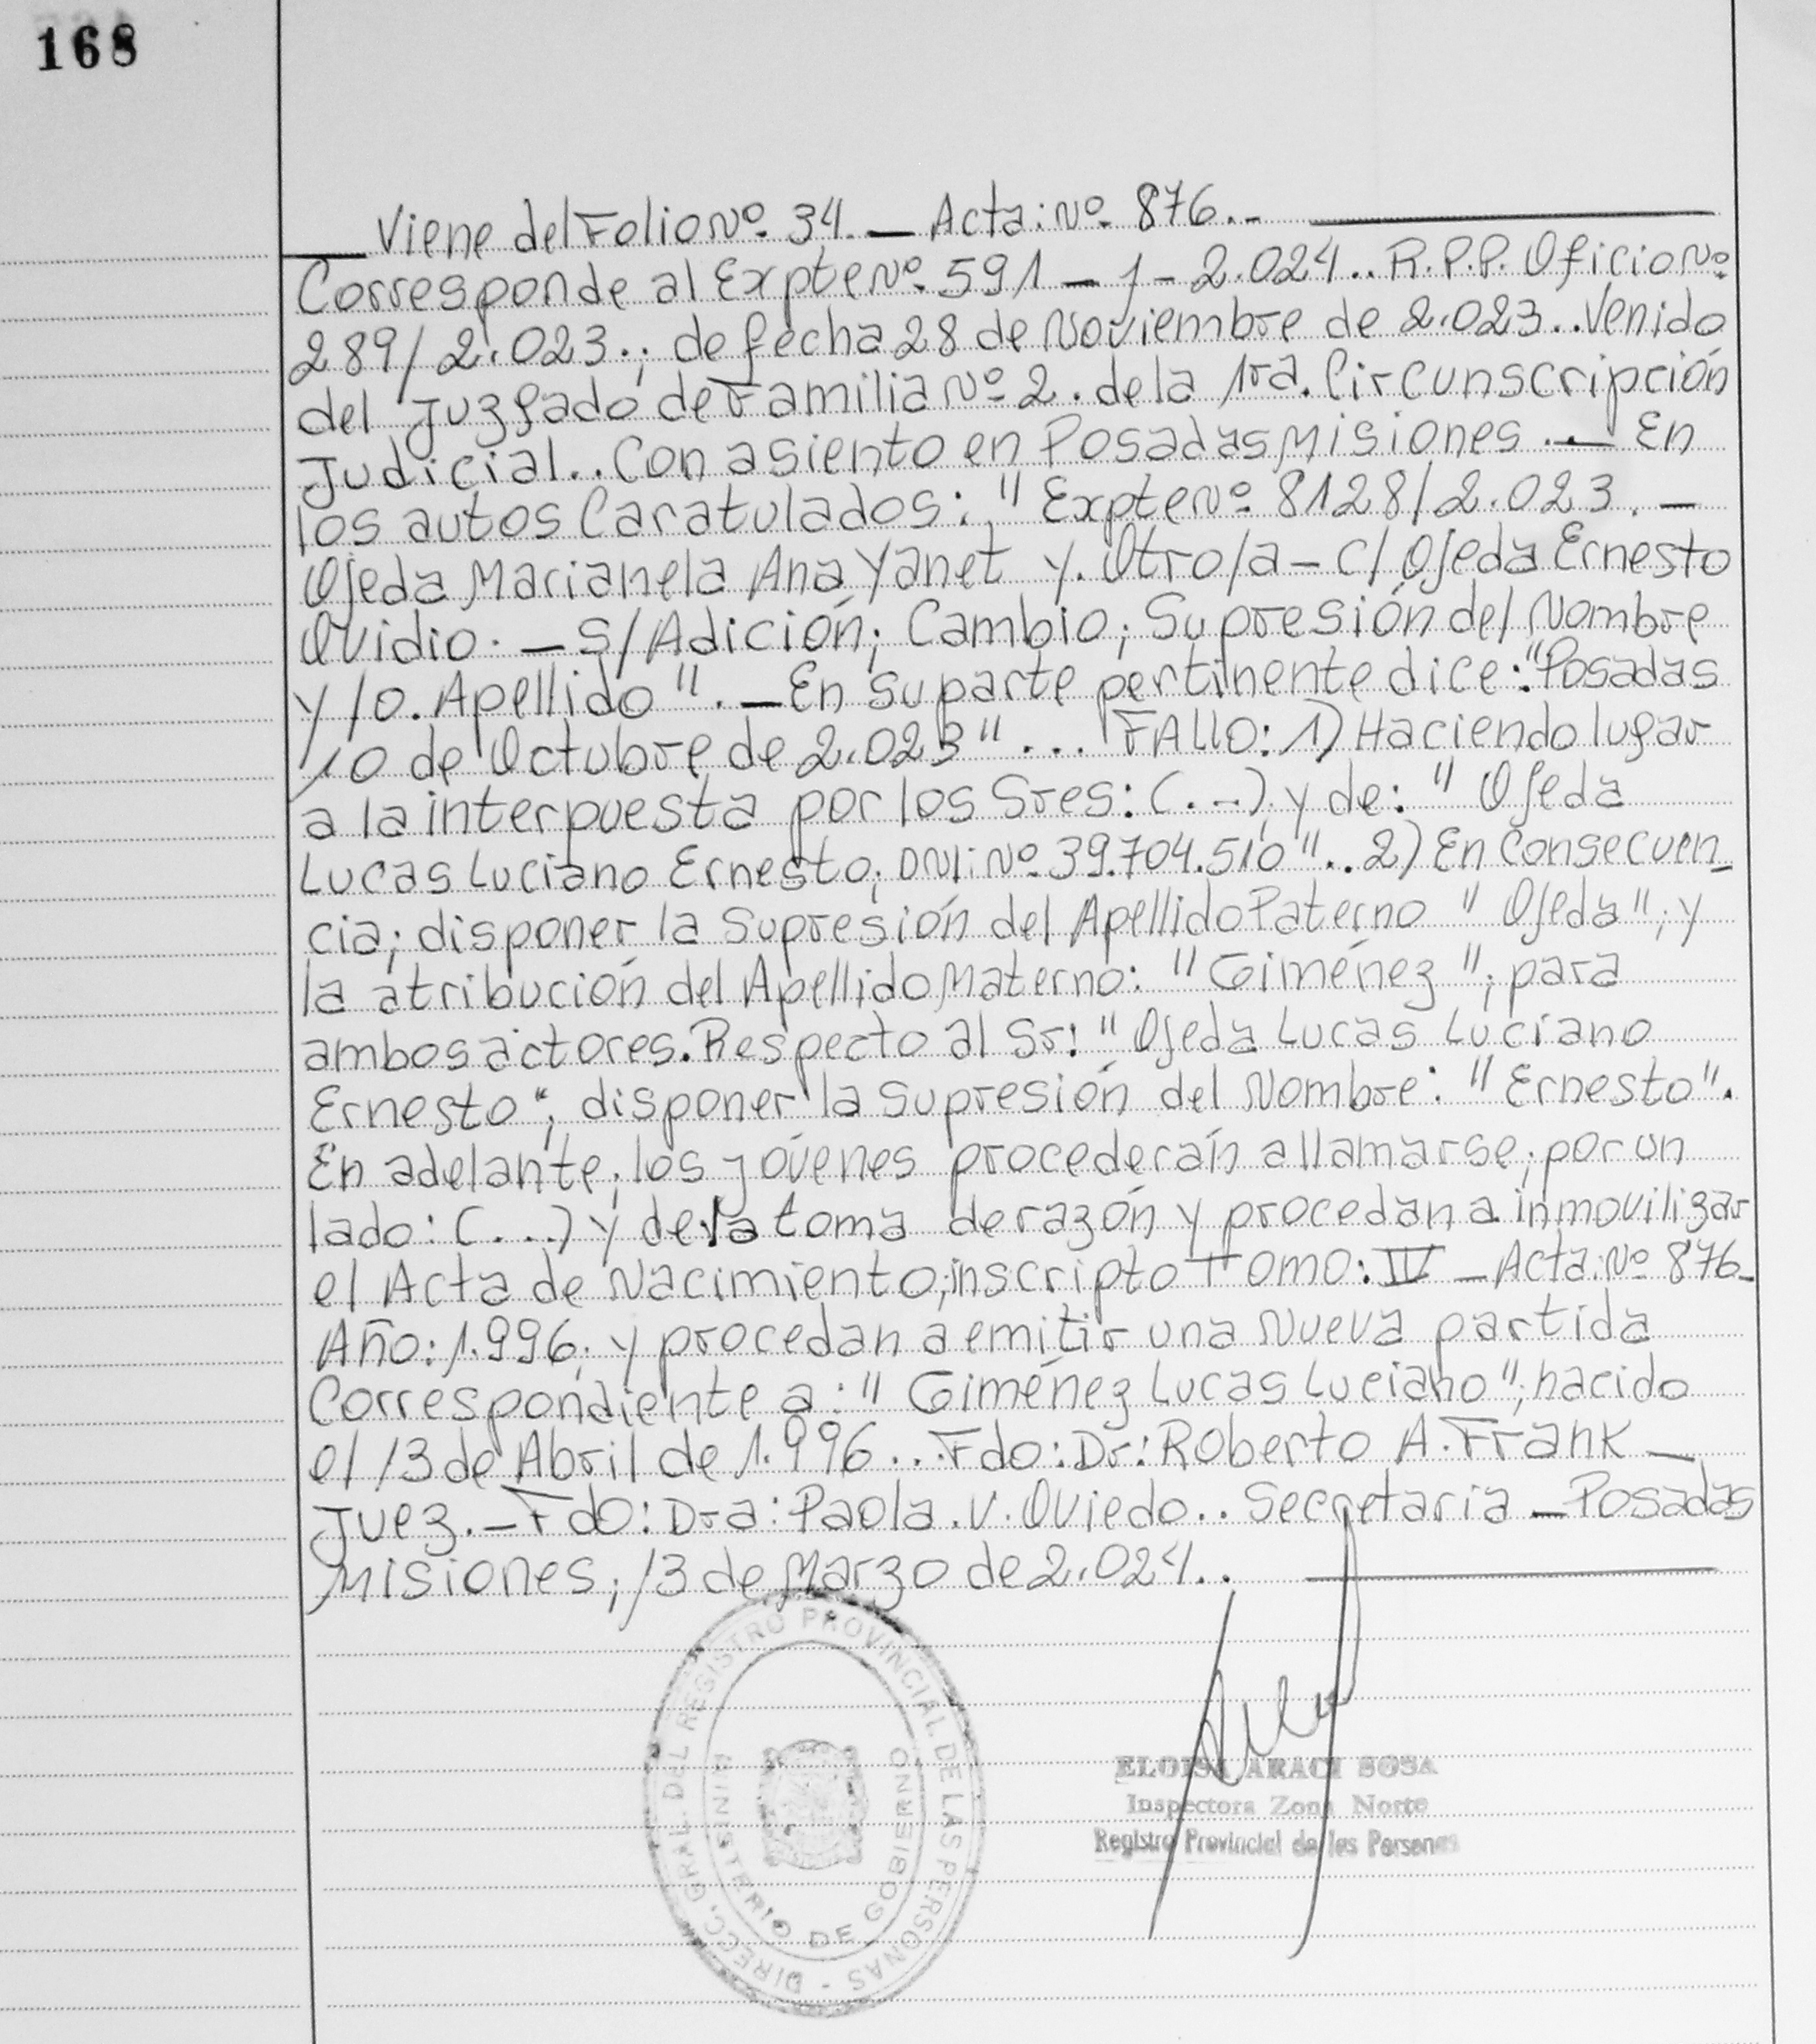 168
Viene del Folio Nº 34. — Acta: Nº 876.-
Corresponde al Expte Nº 591 – 1 – 2.024.. R.P.P. Oficio Nº
289/2.023.; de fecha 28 de Noviembre de 2.023.. Venido
del Juzgado de Familia Nº 2. de la 1ra. Circunscripción
Judicial.. Con asiento en Posadas Misiones .— En
los autos Caratulados: " Expte Nº 8128/2.023. –
Ojeda Marianela Ana Yanet y. Otro/a – C/ Ojeda Ernesto
Ovidio. – S/ Adición; Cambio; Supresión del Nombre
y/o. Apellido". — En su parte pertinente dice: "Posadas
10 de Octubre de 2.023" ... FALLO: 1) Haciendo lugar
a la interpuesta por los Sres: (...) y de: " Ojeda
Lucas Luciano Ernesto; DNI: Nº 39.704.510".. 2) En Consecuen_
cia; disponer la Supresión del Apellido Paterno " Ojeda"; y
la atribución del Apellido Materno: "Giménez"; para
ambos actores. Respecto al Sr: " Ojeda Lucas Luciano
Ernesto"; disponer la Supresión del Nombre: "Ernesto".
En adelante; los jóvenes procederán a llamarse; por un
lado: (...) y de la toma de razón y procedan a inmovilizar
el Acta de Nacimiento; inscripto Tomo: IV – Acta: Nº 876–
Año: 1.996; y procedan a emitir una Nueva partida
Correspondiente a: " Giménez Lucas Luciano"; nacido
el 13 de Abril de 1.996... Fdo: Dr: Roberto A. Frank –
Juez. – Fdo: Dra: Paola. V. Oviedo.. Secretaria – Posadas
Misiones; 13 de Marzo de 2.024..
DIRECC. GRAL. DEL REGISTRO PROVINCIAL DE LAS PERSONAS -
MINISTERIO DE GOBIERNO
ELOISA ARACI SOSA
Inspectora Zona Norte
Registro Provincial de las Personas